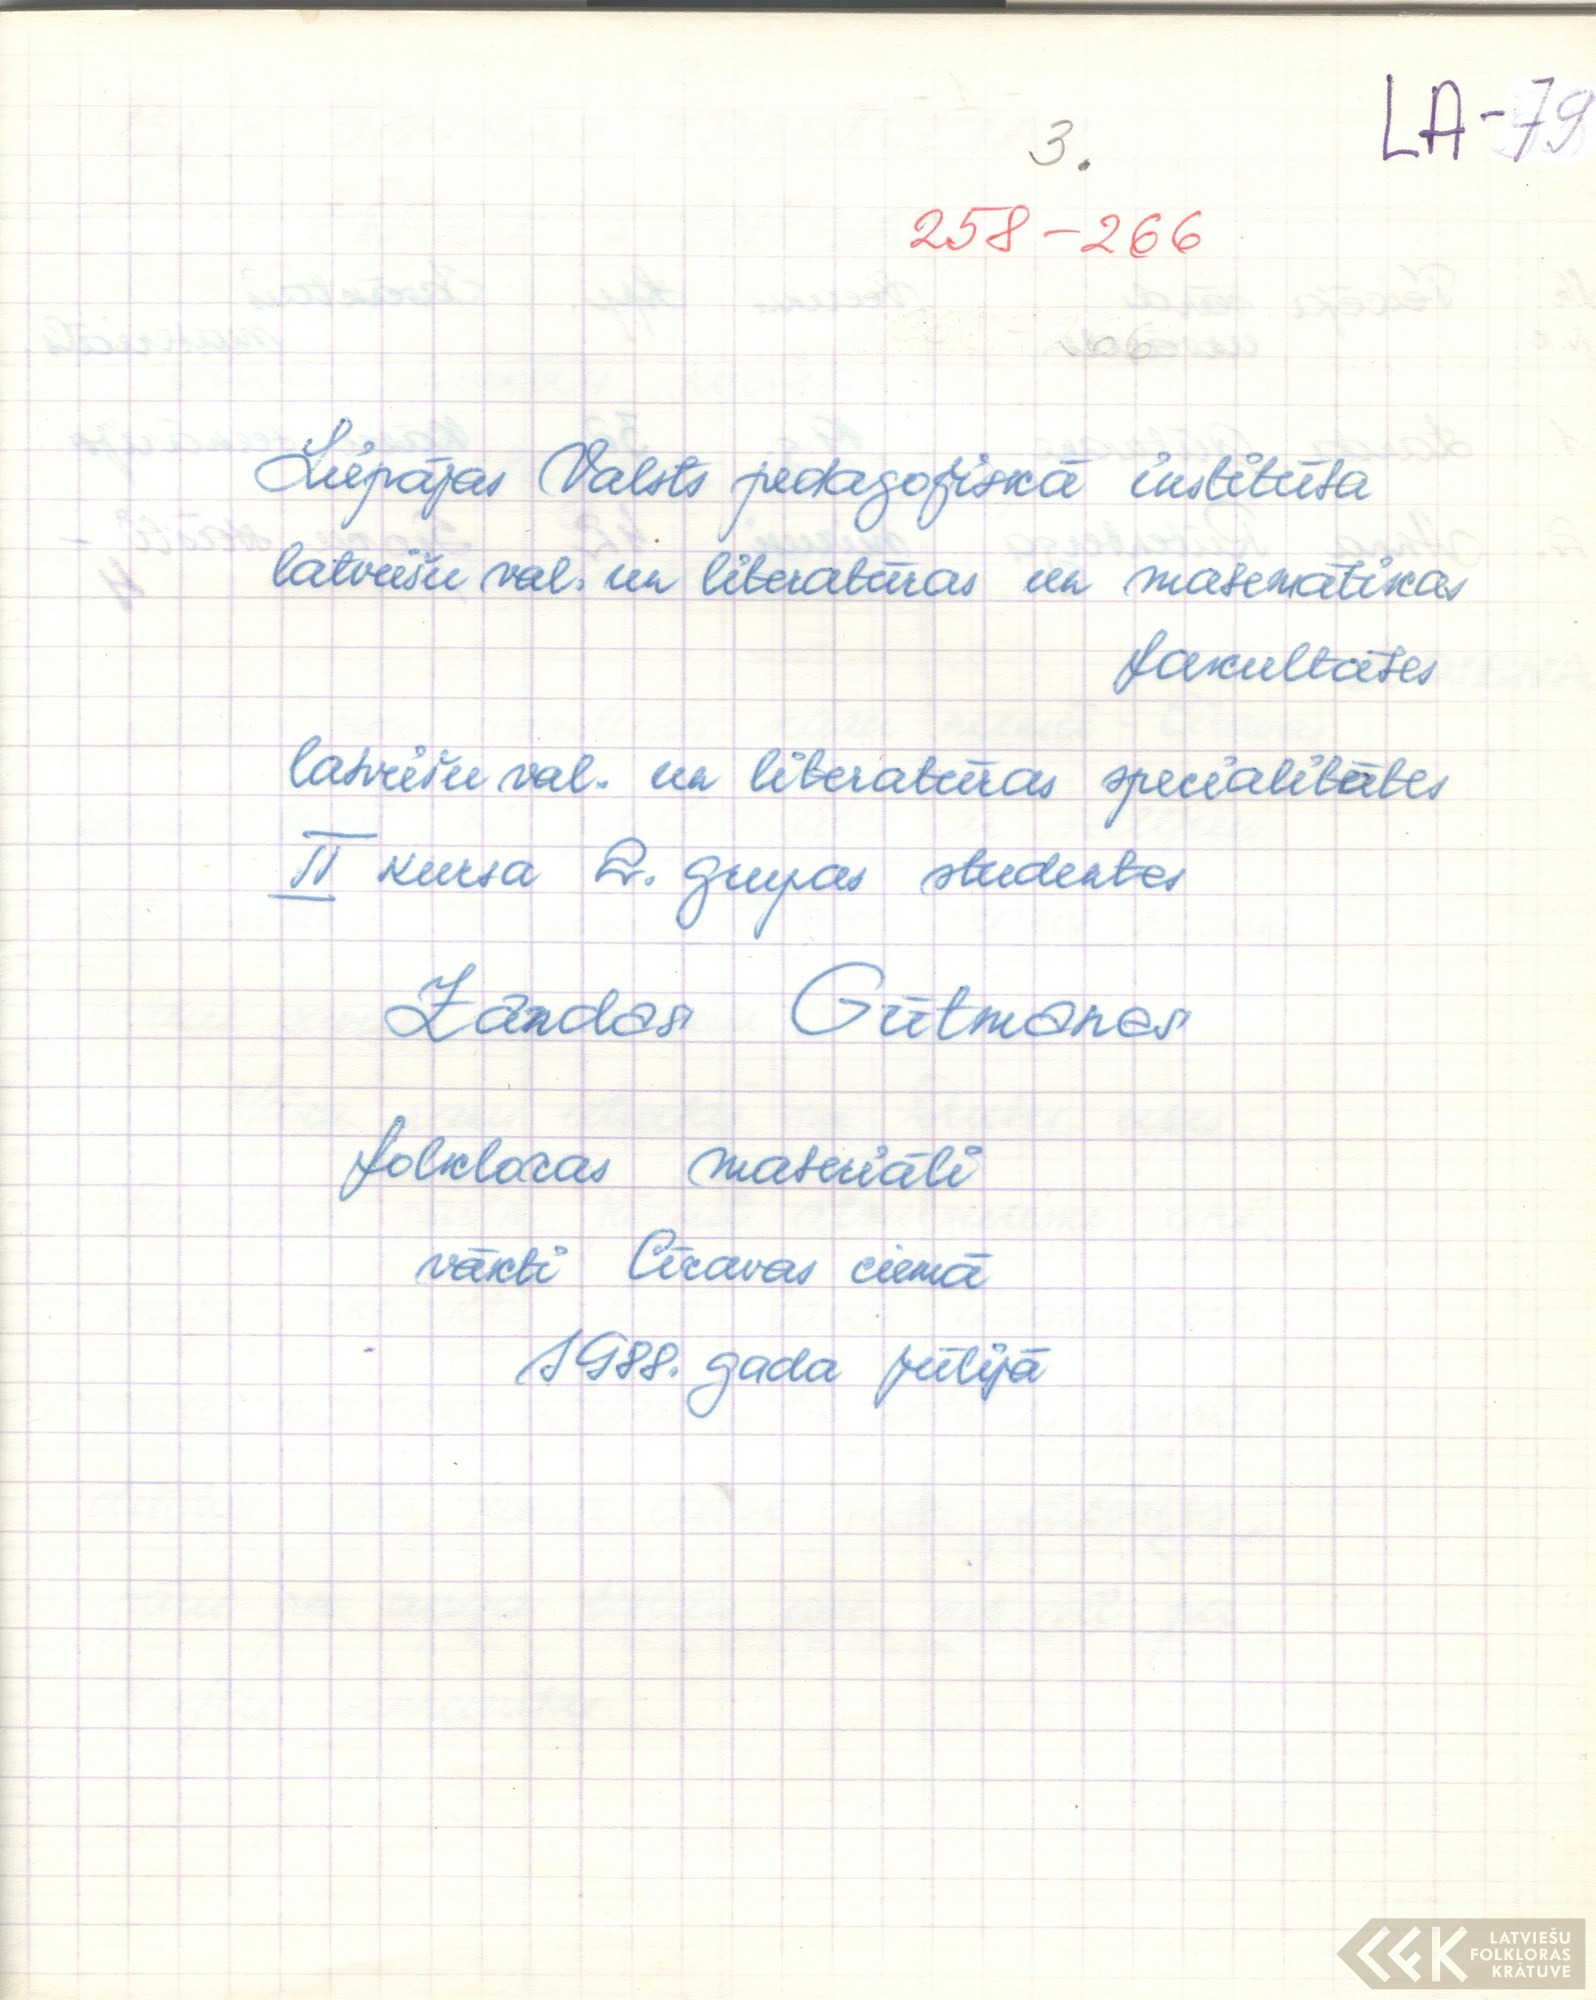 LA-79
3.
258-266
Liepājas Valsts pedagoģiskā institūta
latviešu val. un literatūras un matemātikas
fakultātes
latviešu val. un literatūras specialitātes
II kursa 2. grupas studentes
Zandas Gūtmanes
folkloras materiāli
vākti Cīravas ciemā
1988. gada jūlijā
LATVIEŠU
FOLKLORAS
KRĀTUVE